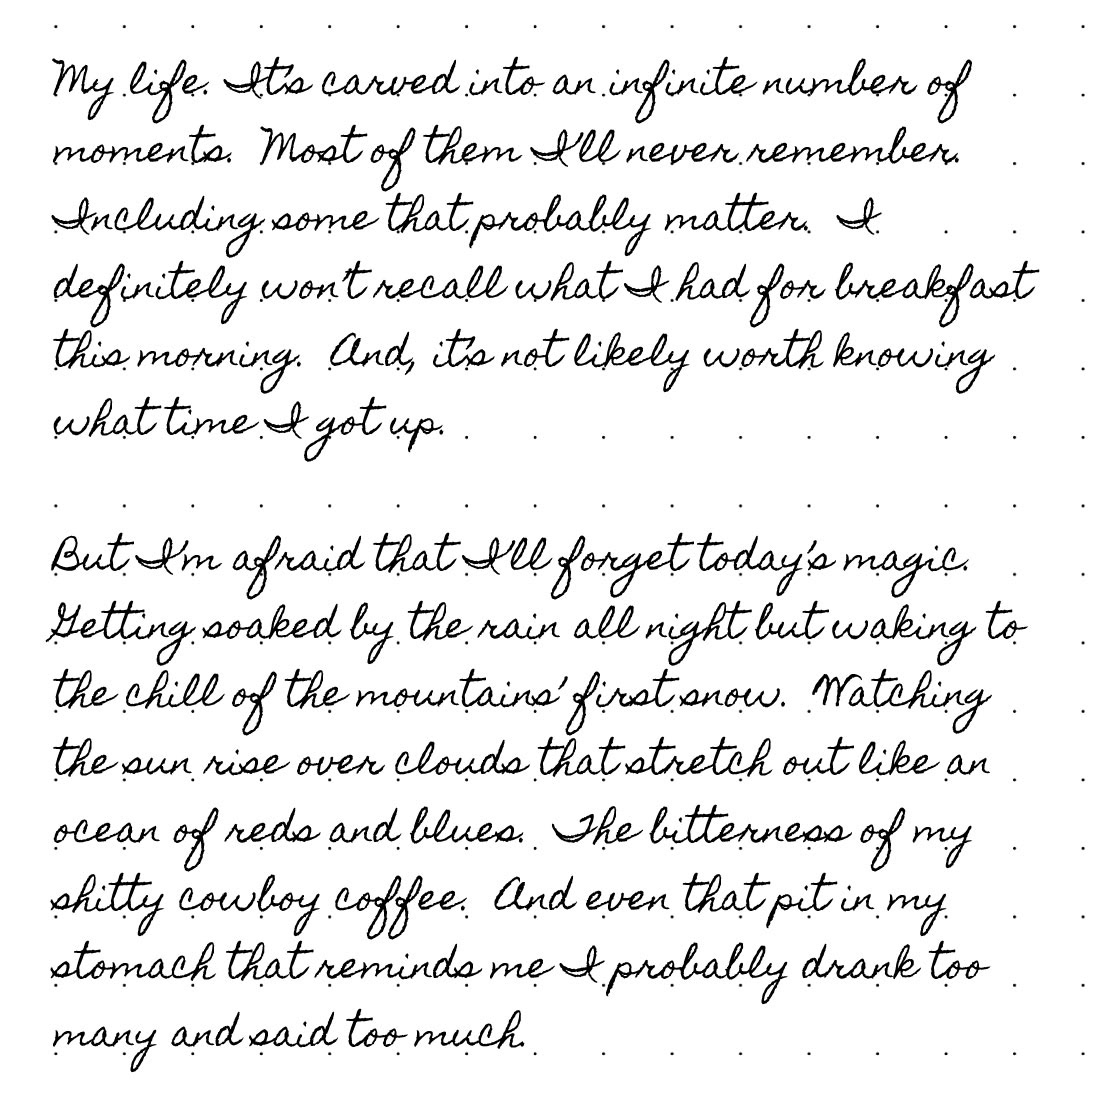 My life. It's carved into an infinite number of
moments. Most of them I'll never remember.
Including some that probably matter. I
definitely won't recall what I had for breakfast
this morning. And, it's not likely worth knowing
what time I got up.
But I'm afraid that I'll forget today's magic.
Getting soaked by the rain all night but waking to
the chill of the mountains' first snow. Watching
the sun rise over clouds that stretch out like an
ocean of reds and blues. The bitterness of my
shitty cowboy coffee. And even that pit in my
stomach that reminds me I probably drank too
many and said too much.